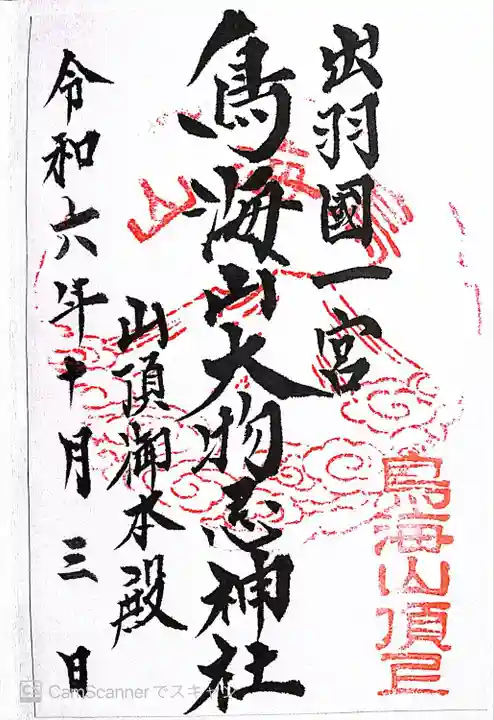 出羽國一宮
鳥海山大物忌神社
山頂御本殿
令和六年十月三日
鳥海山頂
CS CamScannerでスキャン